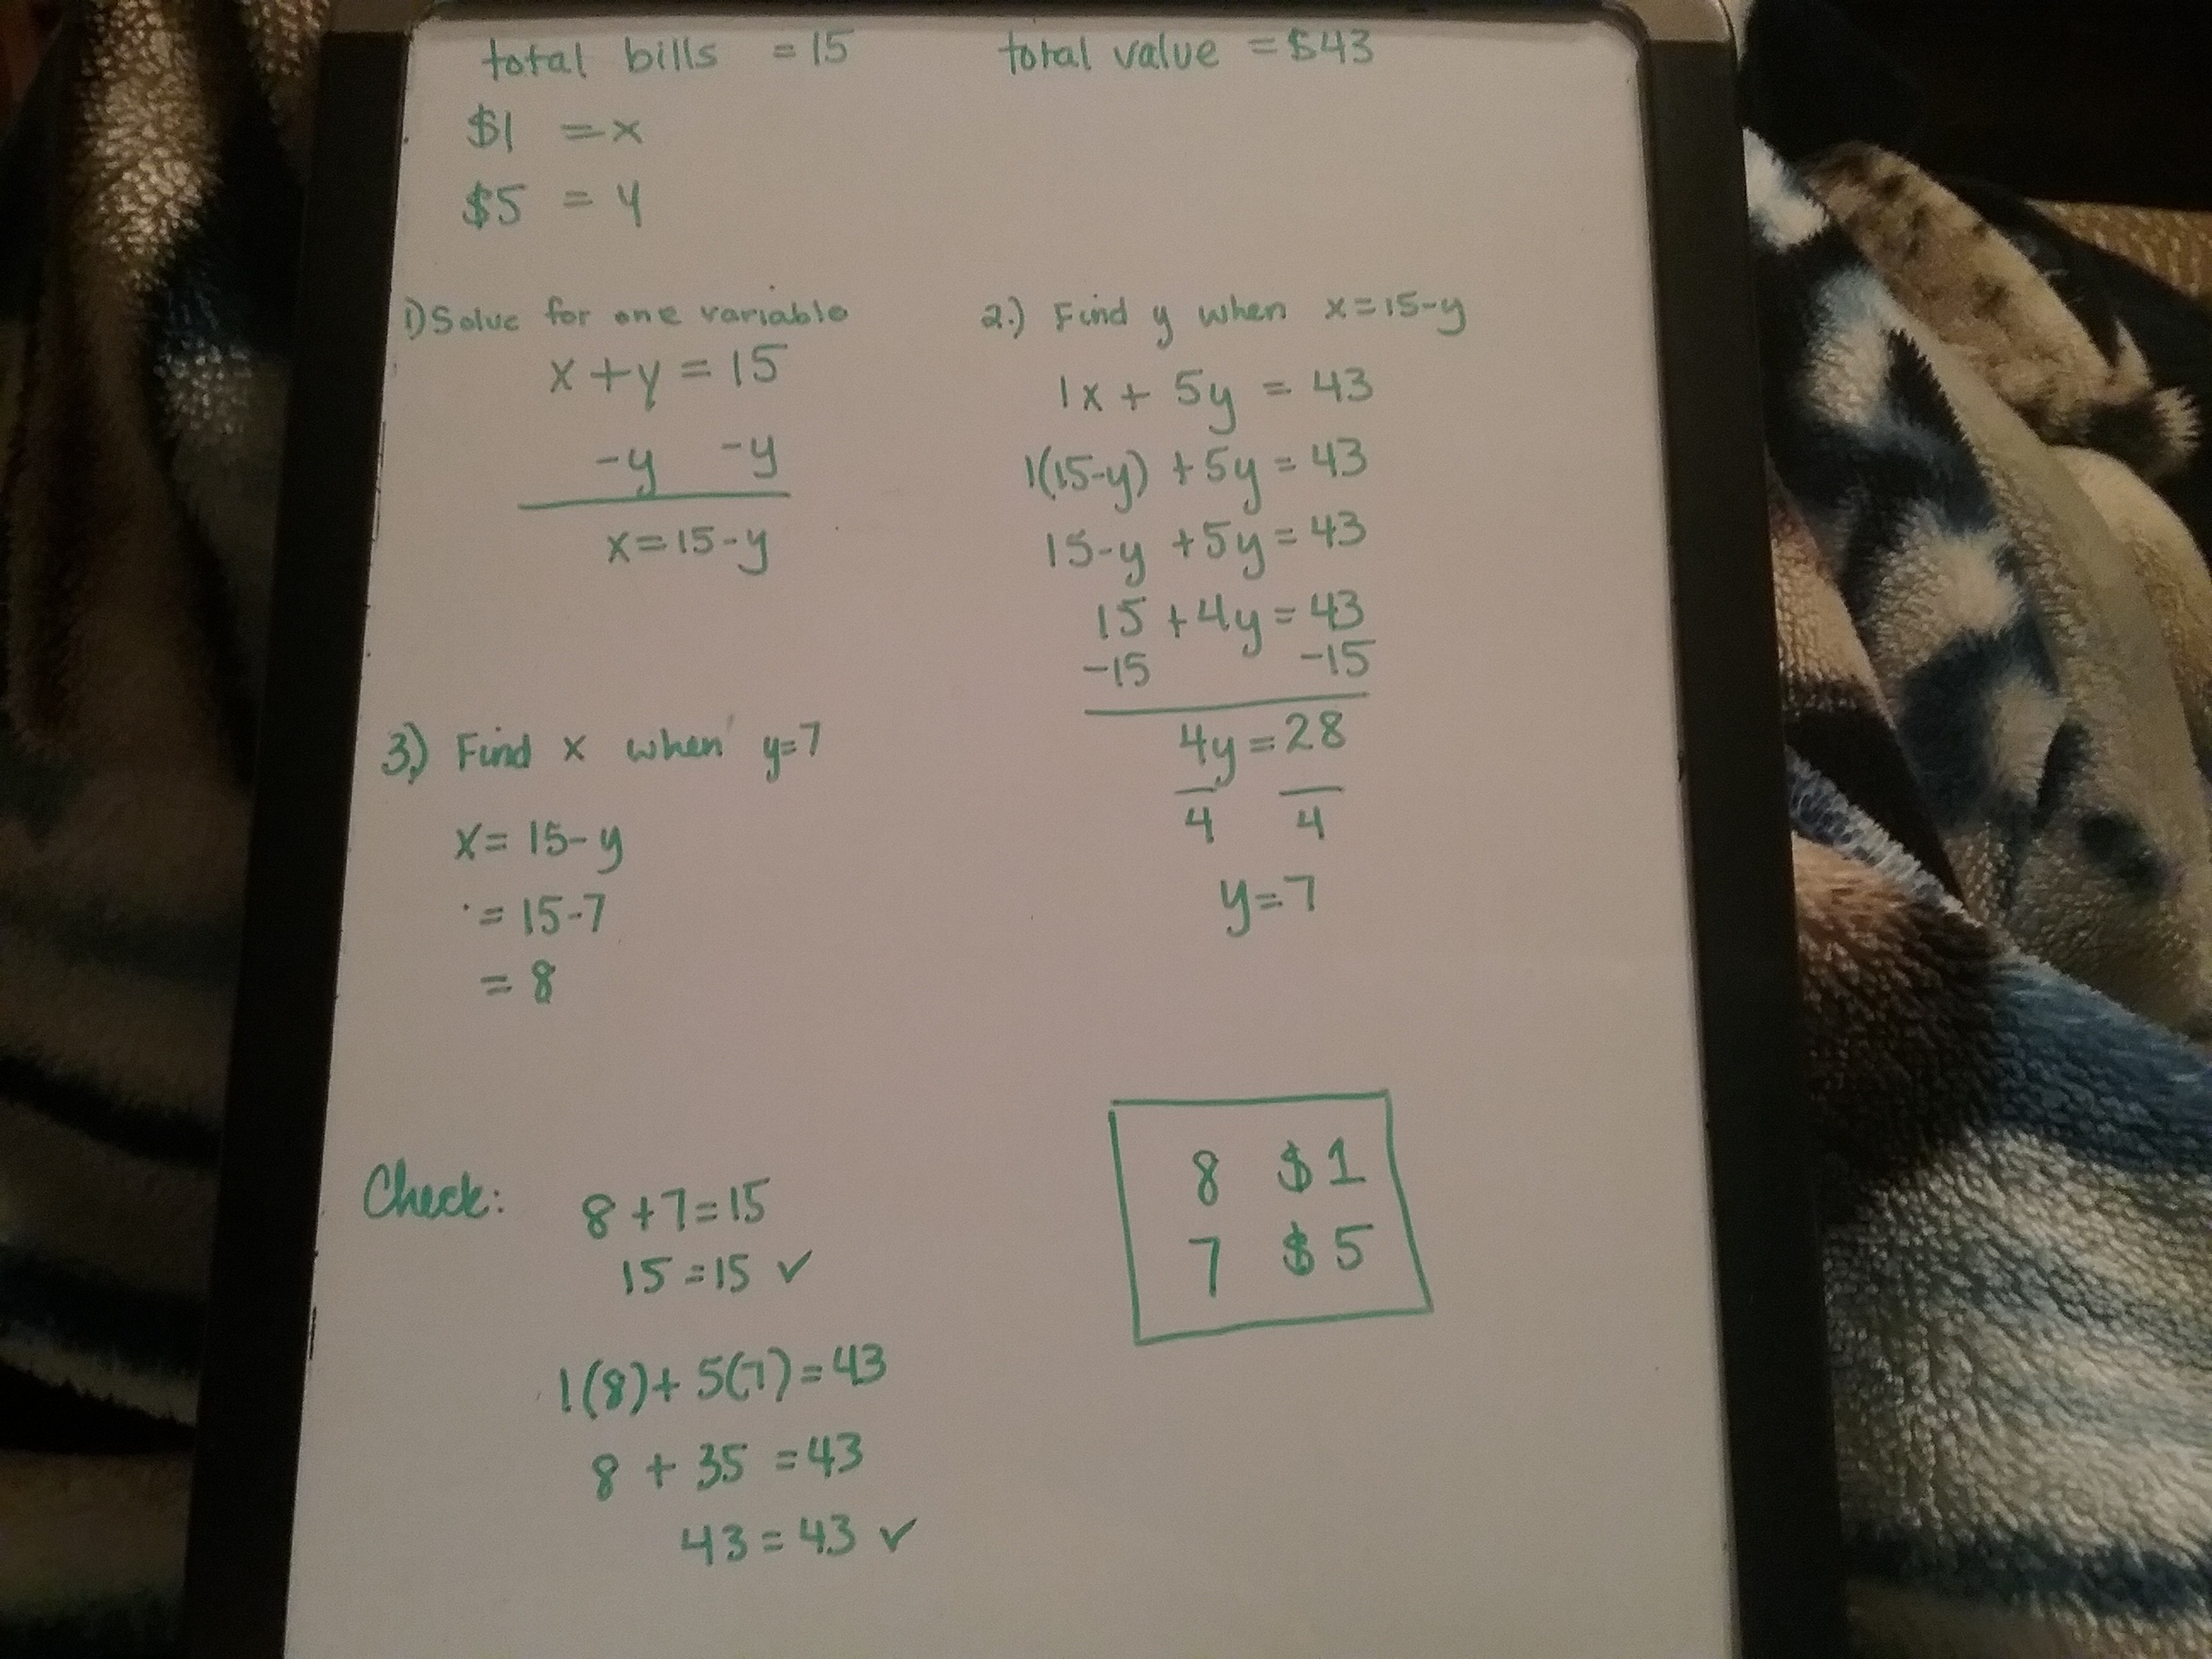 total bills = 15
total value = $43
$1 = x
$5 = y
1) Solve for one variable
x + y = 15
-y -y
x = 15 - y
2.) Find y when x = 15 - y
1x + 5y = 43
1(15-y) + 5y = 43
15 - y + 5y = 43
15 + 4y = 43
-15 -15
4y = 28
4 4
y = 7
3.) Find x when y = 7
x = 15 - y
= 15 - 7
= 8
Check: 8 + 7 = 15
15 = 15 ✓
1(8) + 5(7) = 43
8 + 35 = 43
43 = 43 ✓
8 $1
7 $5